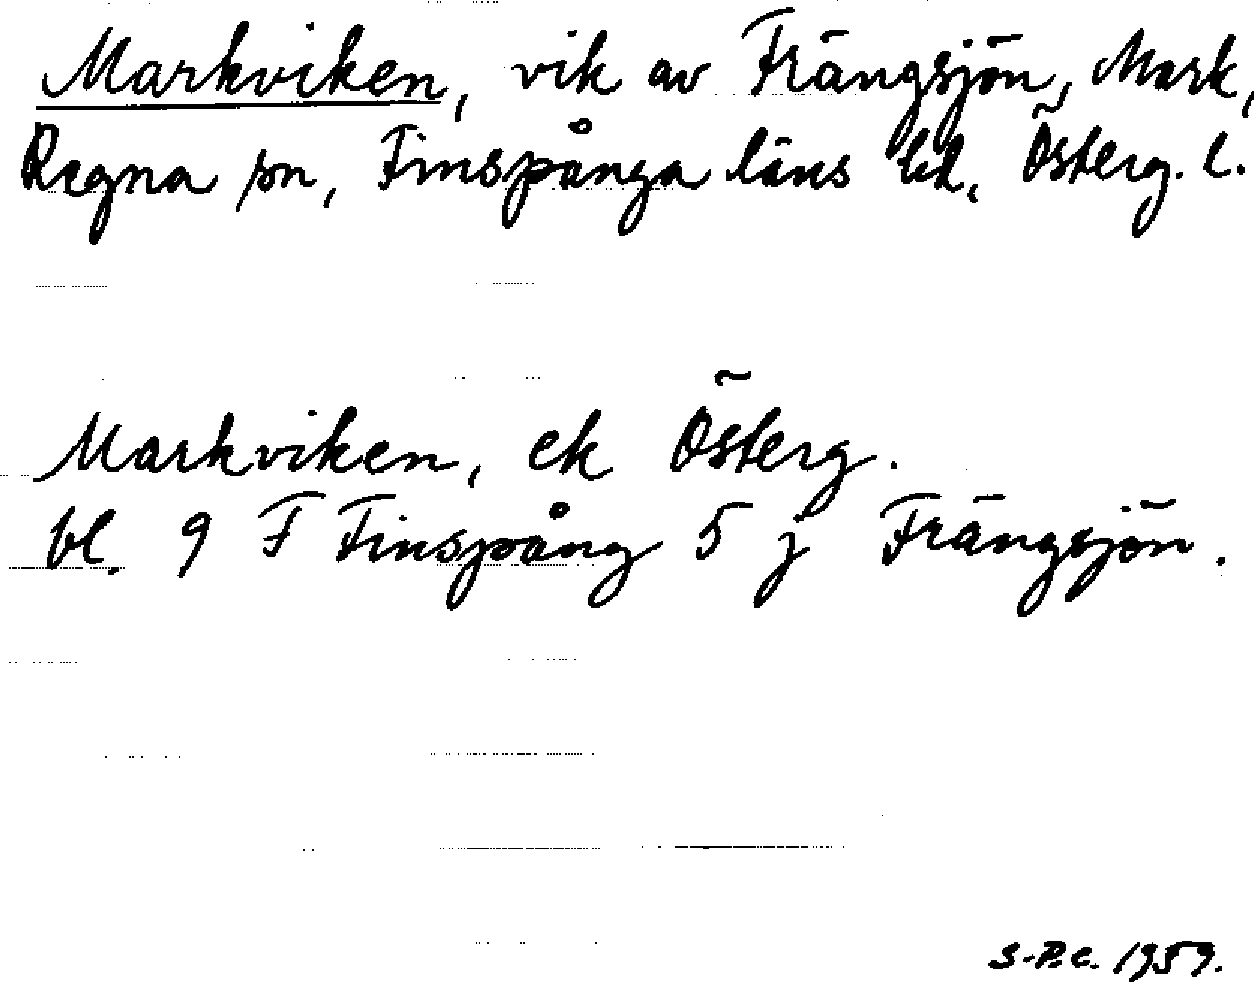 Markviken, vik av Frängsjön, Mark,
Regna sn, Finspånga läns hd, Österg. l.
Markviken, ek Österg.
bl. 9 F Finspång 5 j Frängsjön.
S-P.C. 1959.